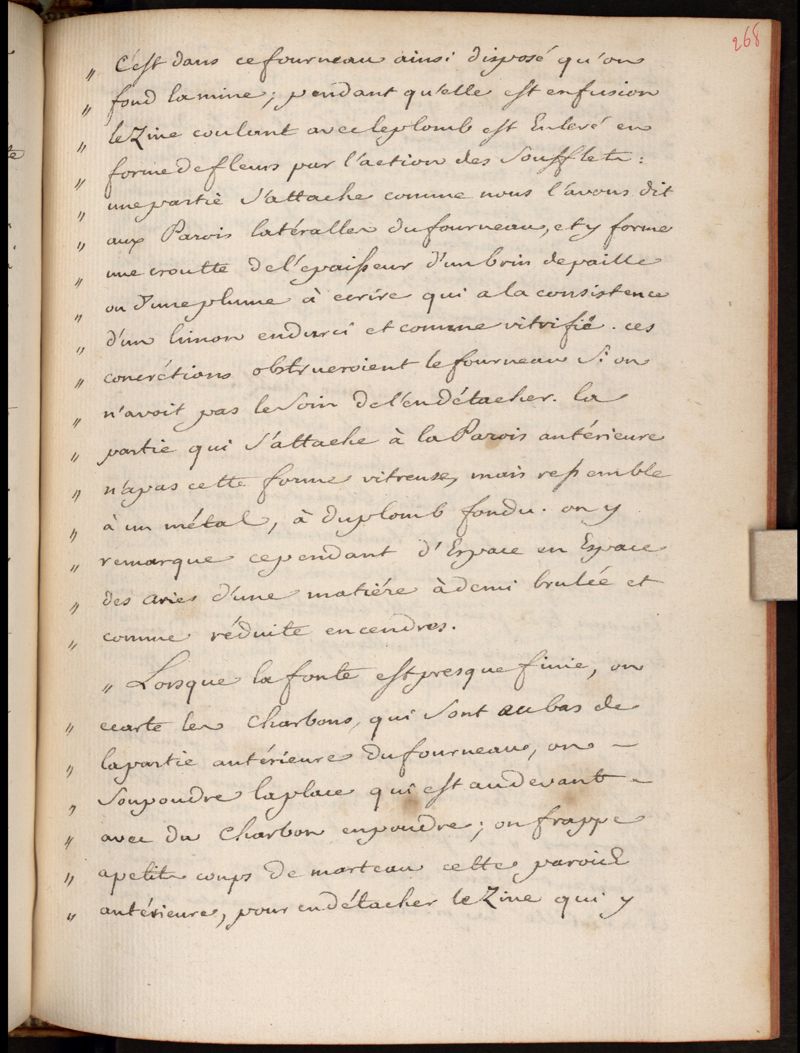 268
" C'est dans ce fourneau ainsi disposé qu'on
" fond la mine; pendant qu'elle est en fusion
" le Zinc coulant avec le plomb est Enlevé en
" forme de fleurs par l'action des Soufflets:
" une partie s'attache comme nous l'avons dit
" aux Parois latéralles du fourneau, et y forme
" une croutte de l'epaisseur d'un brin de paille
" ou d'une plume à ecrire qui a la consistence
" d'un limon endurci et comme vitrifié. ces
" concrétions obstrueroient le fourneau Si on
" n'avoit pas le Soin de l'en détacher. la
" partie qui s'attache à la Parois antérieure
" n'a pas cette forme vitreuse, mais ressemble
" à un métal, à du plomb fondu. on y
" remarque cependant d'Espace en Espace
" des aries d'une matiére à demi brulée et
" comme réduite en cendres.
" Lorsque la fonte est presque finie, on
" ecarte les Charbons, qui Sont au bas de
" la partie antérieure du fourneau, on –
" Soupoudre la place qui est au devant –
" avec du Charbon en poudre; on frappe
" a petits coups de marteau cette paroie
" antérieure, pour en détacher le Zinc qui y